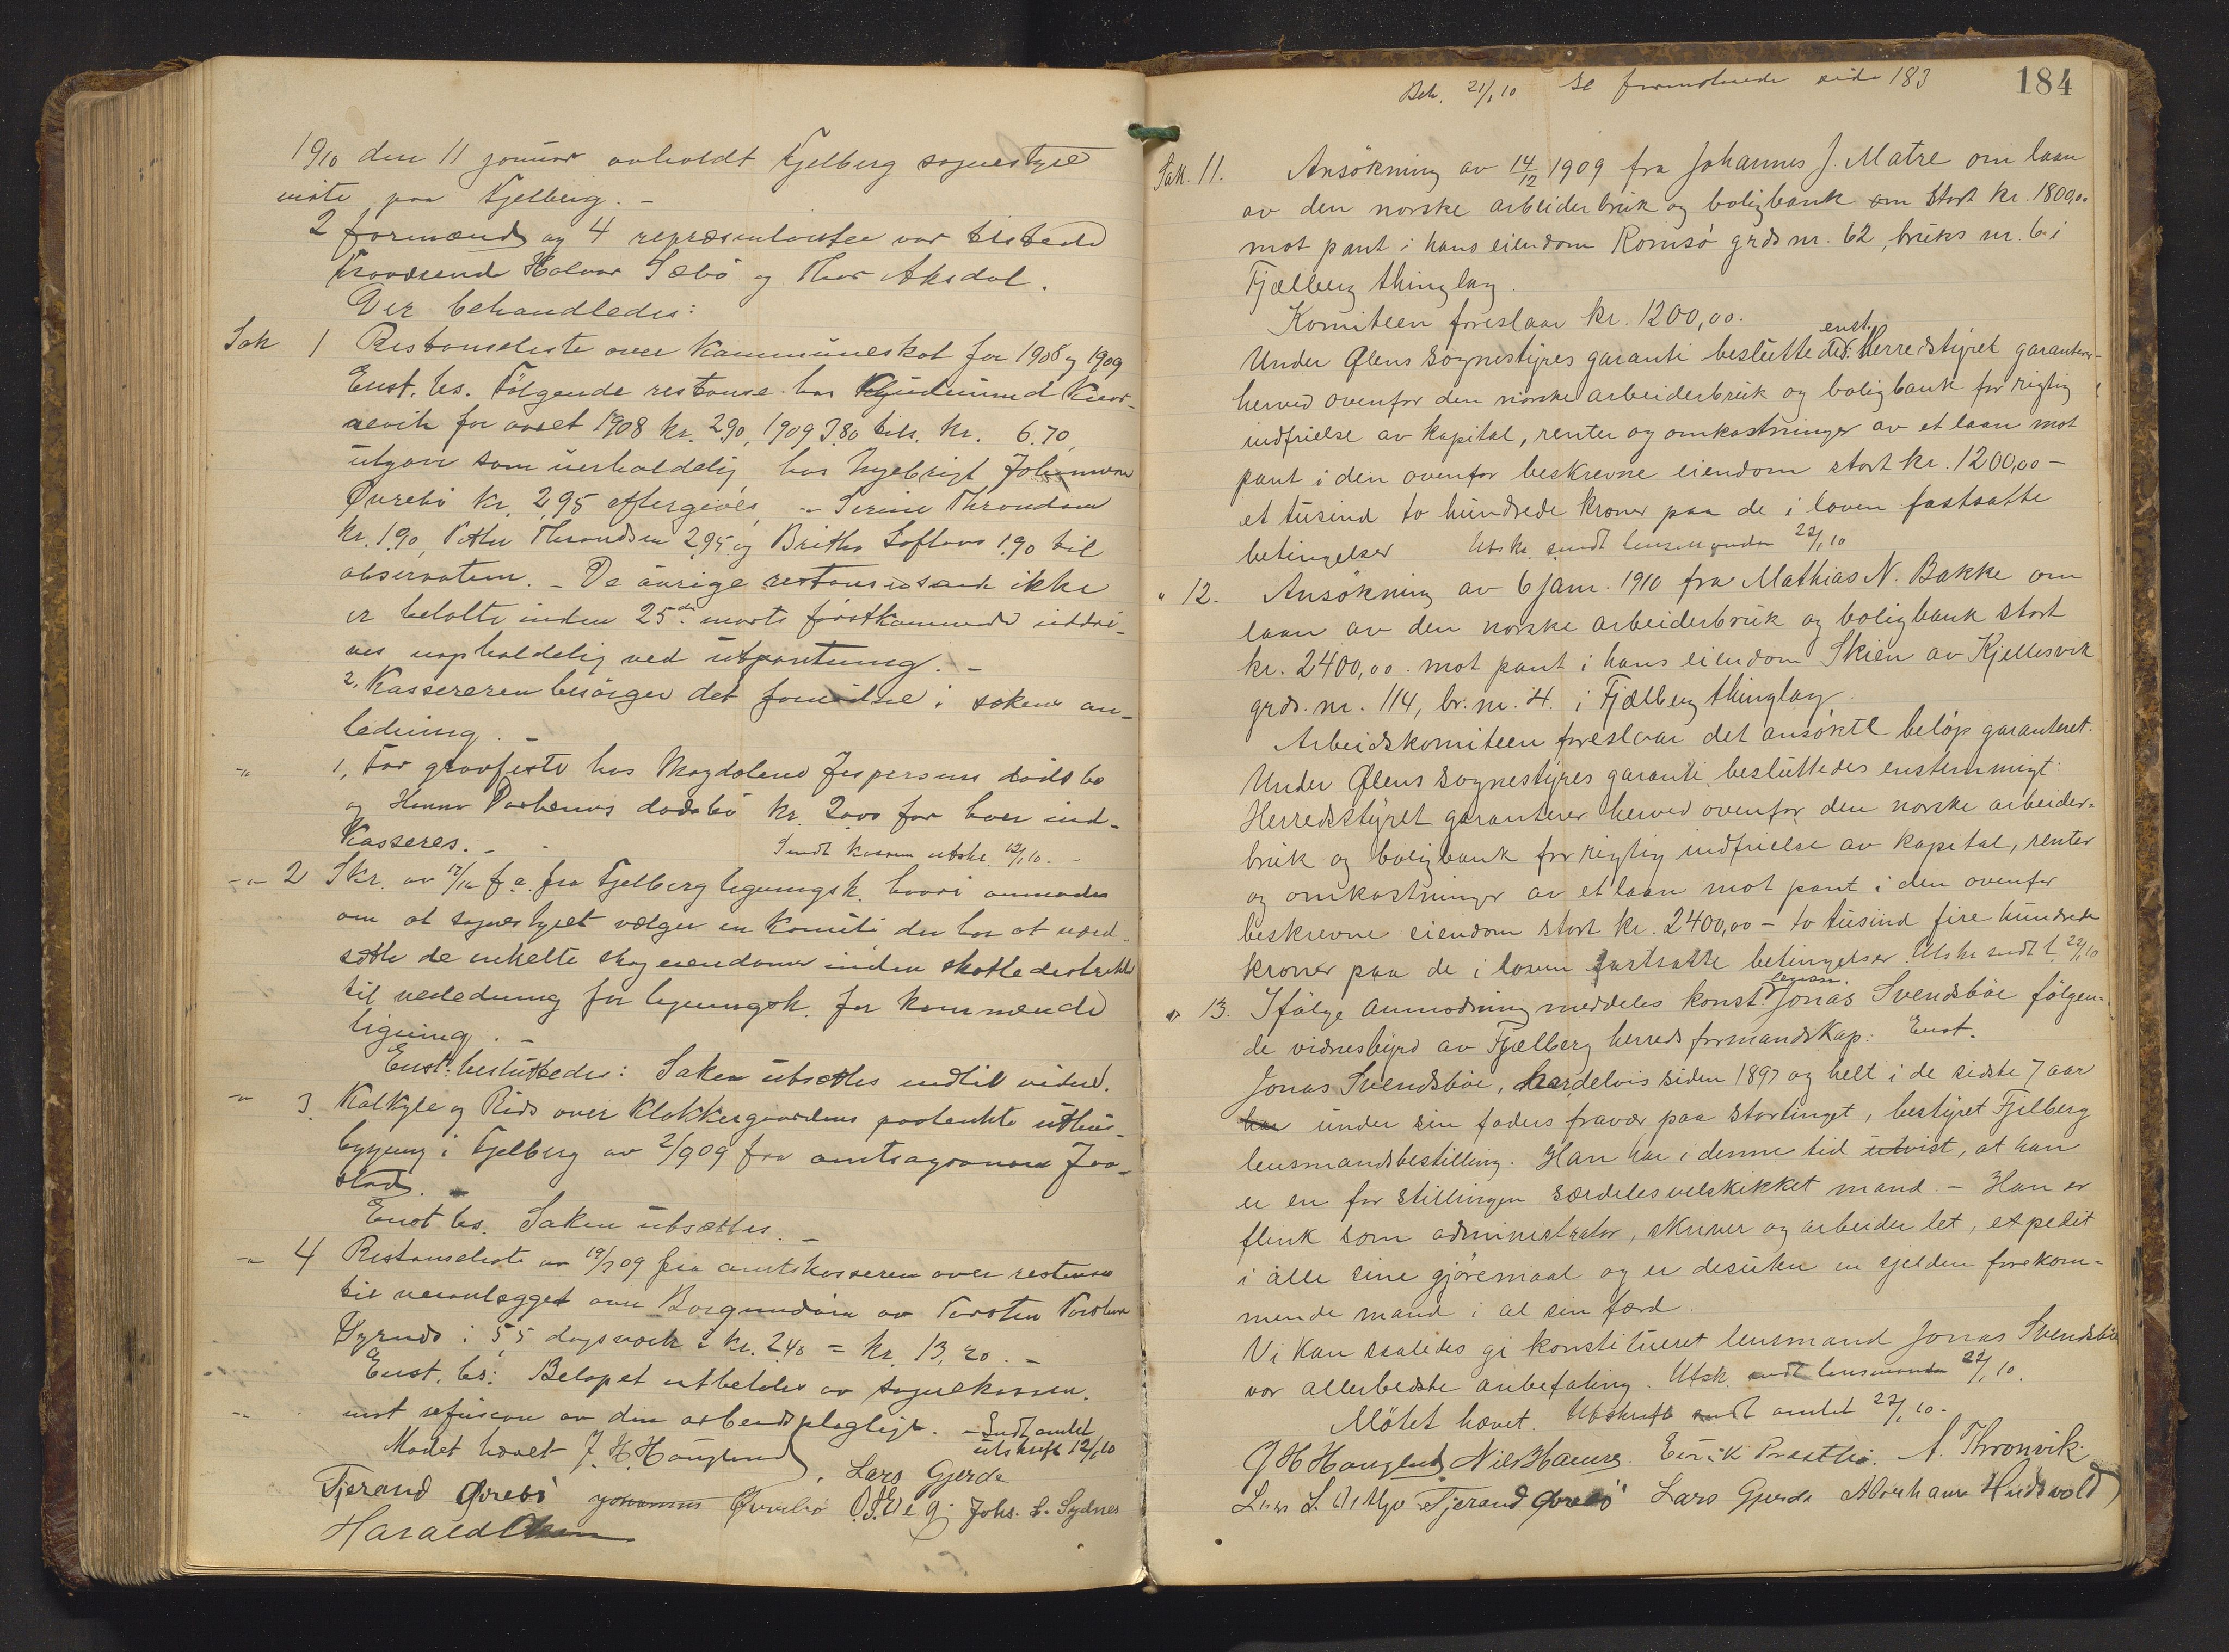 1910 den 11 januar avholdt Fjelberg sognestyre
møte paa Fjelberg. -
2 formænd og 4 repræsentanter var tilstede
Fraværende Halvor Sæbö og Thor Aksdal.
Der behandledes:
Sak 1 Restanseliste over Kommuneskat for 1908 og 1909
Enst. bs. Følgende restanse hos Gudmund Kior-
nevik for aaret 1908 kr. 2.90, 1909 3.80 tils. kr. 6.70,
utgaar som uerholdelig hos Ingebrigt Johannesen
Øvrebö kr. 2,95 eftergives, - Serine Throndsen
kr. 1.90, Petter Throndsen 2,95 og Britha Loftens 1.90 til
observation. - De øvrige restanser som ikke
er betalte inden 25de marts førstkommende inddri-
ves uopholdelig ved utpantning. -
2. Kassereren besørger det fornødne i sakens an-
ledning. -
-"- 1, For gravfeste hos Magdalene Jespersens dødsbo
og Hanna dødsbo kr. 2,00 for hver ind-
kasseres. - Sendt kassen utskr. 12/1 10. -
-"- 2 Skr. av 17/12 f.a. fra Fjelberg ligningsk. hvori anmodes
om at sognestyret vælger en komité der har at værd-
sætte de enkelte skogeiendomer inden skattedistriktet
til veiledning for ligningsk. for kommende
ligning. -
Enst. besluttedes: Saken utsættes indtil videre.
-"- 3. Kalkyle og Rids over Klokkergaardens paatænkte uthus-
bygning i Fjelberg av 2/9 09 fra amtsagronom Jaa-
stad. -
Enst bs. Saken utsættes. -
-"- 4 Restanseliste av 19/7 09 fra amtskasseren over restanse
til veianlægget over Borgundøen av Torsten Torstens
i 5,5 dagsverk à kr. 2.40 = kr. 13,20. -
Enst. bs: Belöpet utbetales av sognekassen.
mot refusion av den arbeidspligtige. - Sendt amtet
utskrift 12/1 10
Mødet hævet J. H. Haugland. Lars Gjerde
Tjerand Øvrebö Johannes Øvrebö O. S. Veig Johs. L. Sydnes
Harald Olsen
184
Beh. 21/1 10 Se formötende side 183
Sak. 11. Ansökning av 14/12 1909 fra Johannes J. Matre om laan
av den norske arbeiderbruk og boligbank om stort kr. 1800,00
mot pant i hans eiendom Romsö grds nr. 62, bruks nr. 6 i
Fjælberg thinglag.
Komiteen foreslaar kr. 1200,00.
enst.
Under Ølens sognestyres garanti besluttedes: Herredstyret garanterer
herved ovenfor den norske arbeiderbruk og boligbank for rigtig
indfrielse av kapital, renter og omkostninger av et laan mot
pant i den ovenfor beskrevne eiendom stort kr. 1200,00 -
et tusind to hundrede kroner paa de i loven fastsatte
betingelser Utskr. sendt lensmanden 22/1 10
" 12. Ansökning av 6 jan. 1910 fra Mathias N. Bakke om
laan av den norske arbeiderbruk og boligbank stort
kr. 2400,00. mot pant i hans eiendom Skien av Kjellesvik
grds. nr. 114, br. nr. 4. i Fjælberg thinglag.
Arbeidskomiteen foreslaar det ansökte belöp garanteret.
Under Ølens sognestyres garanti besluttedes enstemmigt:
Herredsstyret garanterer herved ovenfor den norske arbeider-
bruk og boligbank for rigtig indfrielse av kapital, renter
og omkostninger av et laan mot pant i den ovenfor
beskrevne eiendom stort kr. 2400,00 - to tusind fire hundrede
kroner paa de i loven fastsatte betingelser. Utskr sendt l. 22/1 10
lensm.
" 13. Ifölge anmodning meddeles konst. Jonas Svendsböe fölgen-
de vidnesbyrd av Fjælberg herreds formandskap: Enst.
Jonas Svendsböe, har delvis siden 1897 og helt i de sidste 7 aar
har under sin faders fravær paa stortinget, bestyret Fjelberg
lensmandsbestilling. Han har i denne tid utvist, at han
er en for stillingen særdeles velskikket mand. - Han er
flink som administrator, skriver og arbeider let, expedit
i alle sine gjøremaal og er desuten en sjelden forekom-
mende mand i al sin færd.
Vi kan saaledes gi konstitueret lensmand Jonas Svendsböe
vor allerbedste anbefaling. Utsk. sendt lensmanden 22/1 10.
Mötet hævet. Utskrift sendt amtet 22/1 10.
J H Haugland Nils Hauge. Eirik Prestbø. A. Thronvik
Lars L. Tjerand Øvrebö Lars Gjerde Abraham Hudsvold